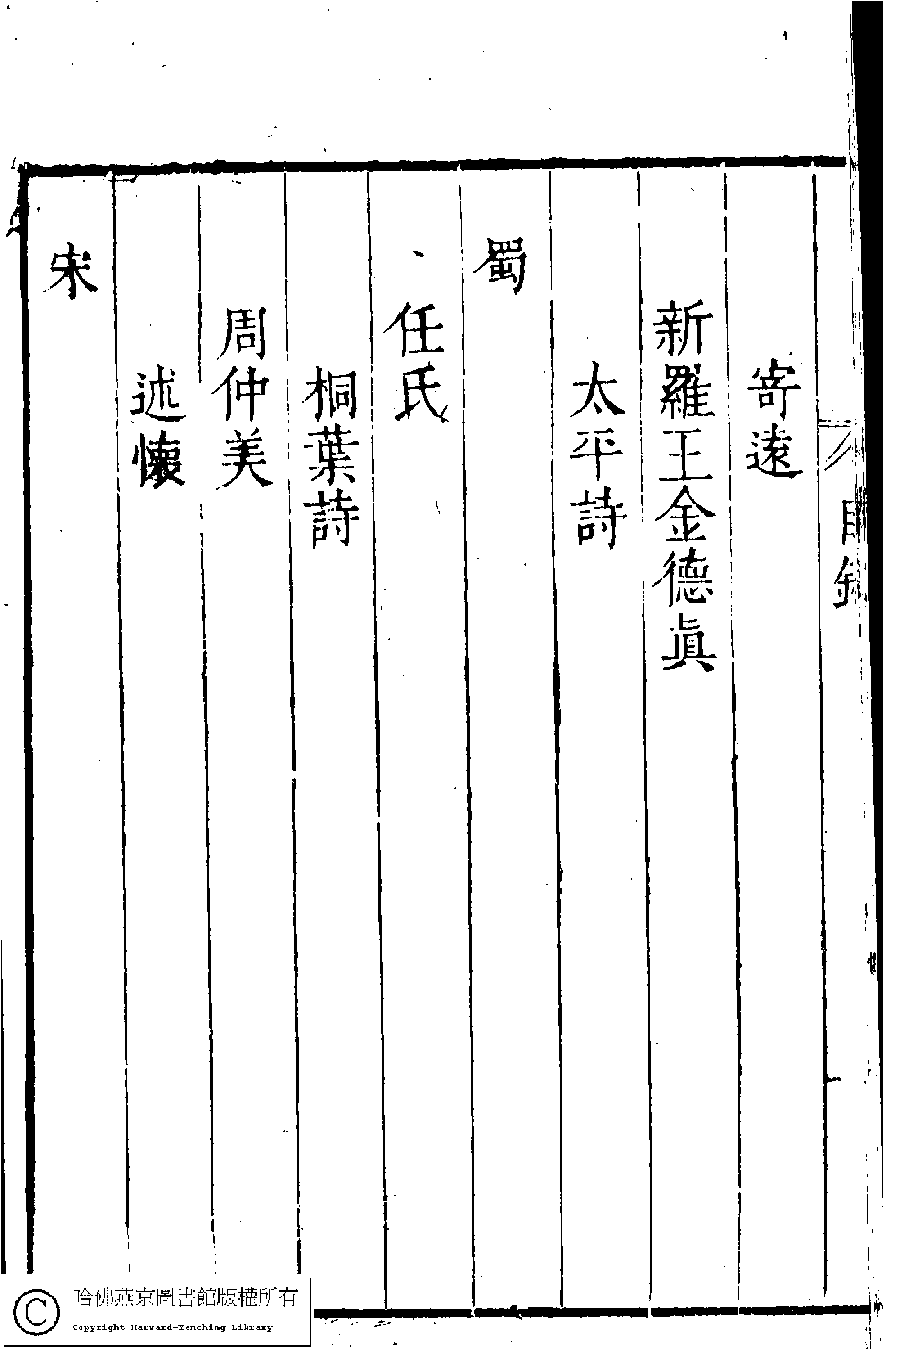 目錄
寄遠
新羅王金德眞
太平詩
蜀
任氏
桐葉詩
周仲美
述懷
宋
哈佛燕京圖書館版權所有
Copyright Harvard-Yenching Library